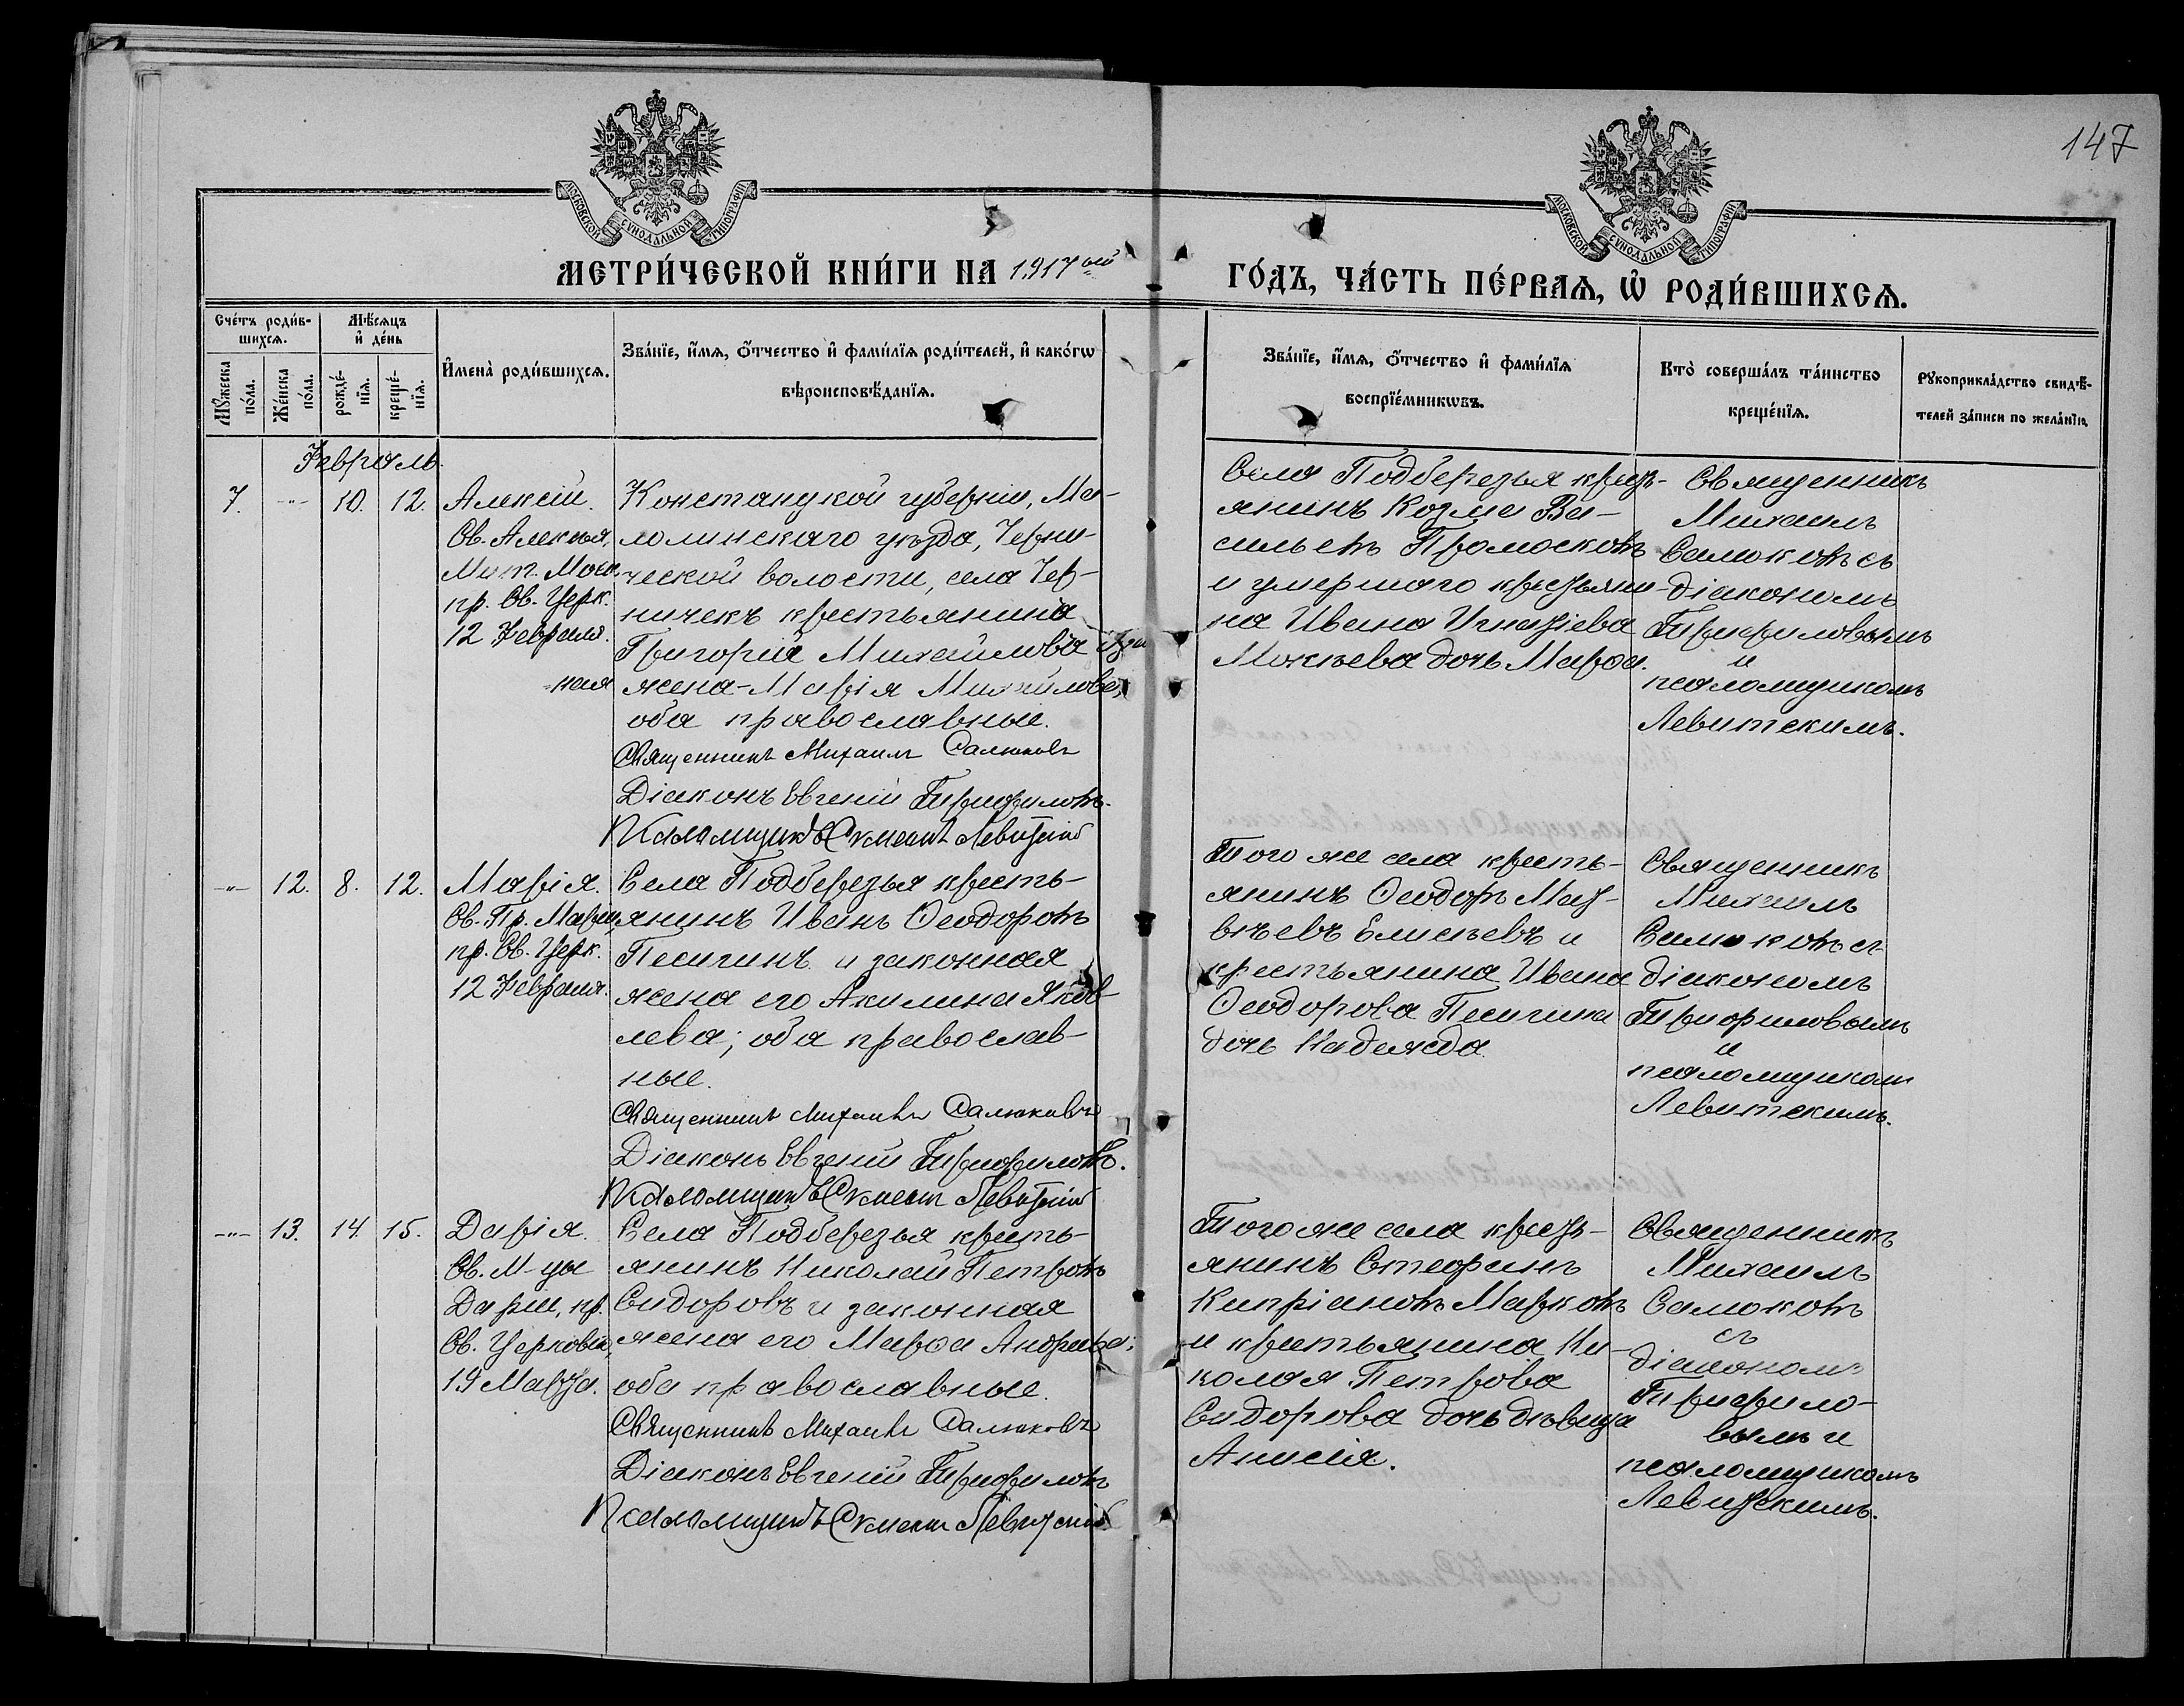 147
МОСКОВСКОЙ СѴНОДАЛЬНОЙ ТИПОГРАФІИ
МОСКОВСКОЙ СѴНОДАЛЬНОЙ ТИПОГРАФІИ
МЕТРИ́ЧЕСКОЙ КНИ́ГИ НА 1917ый
ГО́ДЪ, ЧА́СТЬ ПЕ́РВАѦ, Ѡ҆ РОДИ́ВШИХСѦ.
Сче́тъ роди́в-
шихсѧ.
Мѣ́сѧцъ
и҆ де́нь
Мꙋ́жеска
по́ла.
Же́нска
по́ла.
рожде́-
нїѧ.
креще́-
нїѧ.
И҆мена̀ роди́вшихсѧ.
Зва́нїе, и҆́мѧ, ѻ҆́тчество и҆ фами́лїѧ роди́телей, и҆ како́гѡ
вѣроисповѣ́данїѧ.
Зва́нїе, и҆́мѧ, ѻ҆́тчество и҆ фами́лїѧ
воспрїе́мникѡвъ.
Кто̀ соверша́лъ та́инство
креще́нїѧ.
Рꙋкоприкла́дство свидѣ́-
телей за́писи по жела́нїю.
Февраль.
7. -"- 10. 12.
Алексій.
Св. Алексія,
Мит. Моск.
пр. Св. Церк.
12 Февраля.
губерніи,
уѣзда,
волости, села Чер-
ничекъ крестьянина
Григорія Михайлова
жена-Марія Михайлов
ная
оба православные.
Священникъ Михаилъ Салюковъ
Діаконъ Евгеній Трифиловъ.
Псаломщикъ Левитскій
Села Подберезья кресть-
янинъ Козма Ва-
сильевъ
и умершаго крестьяни-
на Ивана Игнатіева
Мокѣева дочь Марѳа.
Священникъ
Михаилъ
Салюковъ съ
діакономъ
Трифиловымъ
и
псаломщикомъ
Левитскимъ.
-"- 12. 8. 12.
Марія.
Св. Пр. Маріи,
пр. Св. Церк.
12 Февраля.
Села Подберезья кресть-
янинъ Иванъ Ѳеодоровъ
Песигинъ и законная
жена его Акилина Яков-
лева; оба православ-
ные.
Священникъ Михаилъ Салюковъ
Діаконъ Евгеній Трифиловъ.
Псаломщикъ Левитскій
Того же села кресть-
янинъ Ѳеодоръ Мат-
вѣевъ Елисѣевъ и
крестьянина Ивана
Ѳеодорова Песигина
дочь Надежда.
Священникъ
Михаилъ
Салюковъ съ
діакономъ
Трифиловымъ
и
псаломщикомъ
Левитскимъ.
-"- 13. 14. 15.
Дарія.
Св. М-цы
Даріи, пр.
Св. Церковію,
19 Марта.
Села Подберезья кресть-
янинъ Николай Петровъ
Сидоровъ и законная
жена его Марѳа Андреева;
оба православные.
Священникъ Михаилъ Салюковъ
Діаконъ Евгеній Трифиловъ
Псаломщикъ Левитскій
Того же села кресть-
янинъ Стефанъ
Кипріановъ Марковъ
и крестьянина Ни-
колая Петрова
Сидорова дочь дѣвица
Анисія.
Священникъ
Михаилъ
Салюковъ
съ
діакономъ
Трифило-
вымъ и
псаломщикомъ
Левитскимъ.